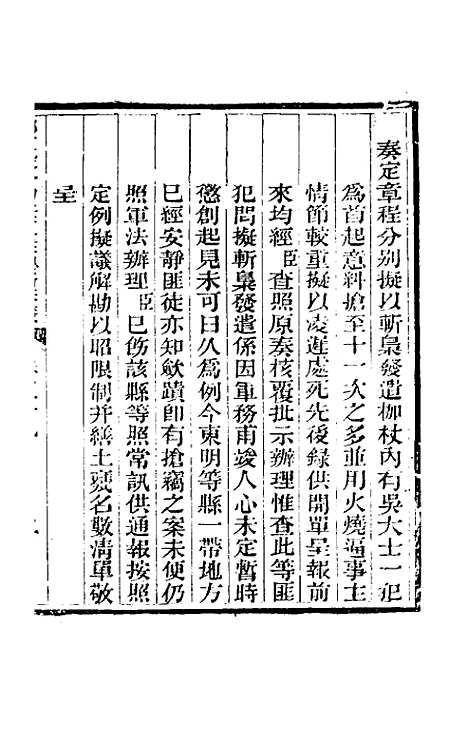 奏定章程分别擬以斬梟發遣枷杖內有吳大士一犯
為首起意糾搶至十一次之多並用火燒逼事主
情節較重擬以凌遲處死先後錄供開單呈報前
來均經臣查照原奏核覆批示辦理惟查此等匪
犯問擬斬梟發遣係因軍務甫竣人心未定暫時
懲創起見未可日久為例今東明等縣一帶地方
已經安靜匪徒亦知斂蹟卽有搶竊之案未便仍
照軍法辦理臣已飭該縣等照常訊供通報按照
定例擬議解勘以昭限制幷繕土寇名數清單敬
呈